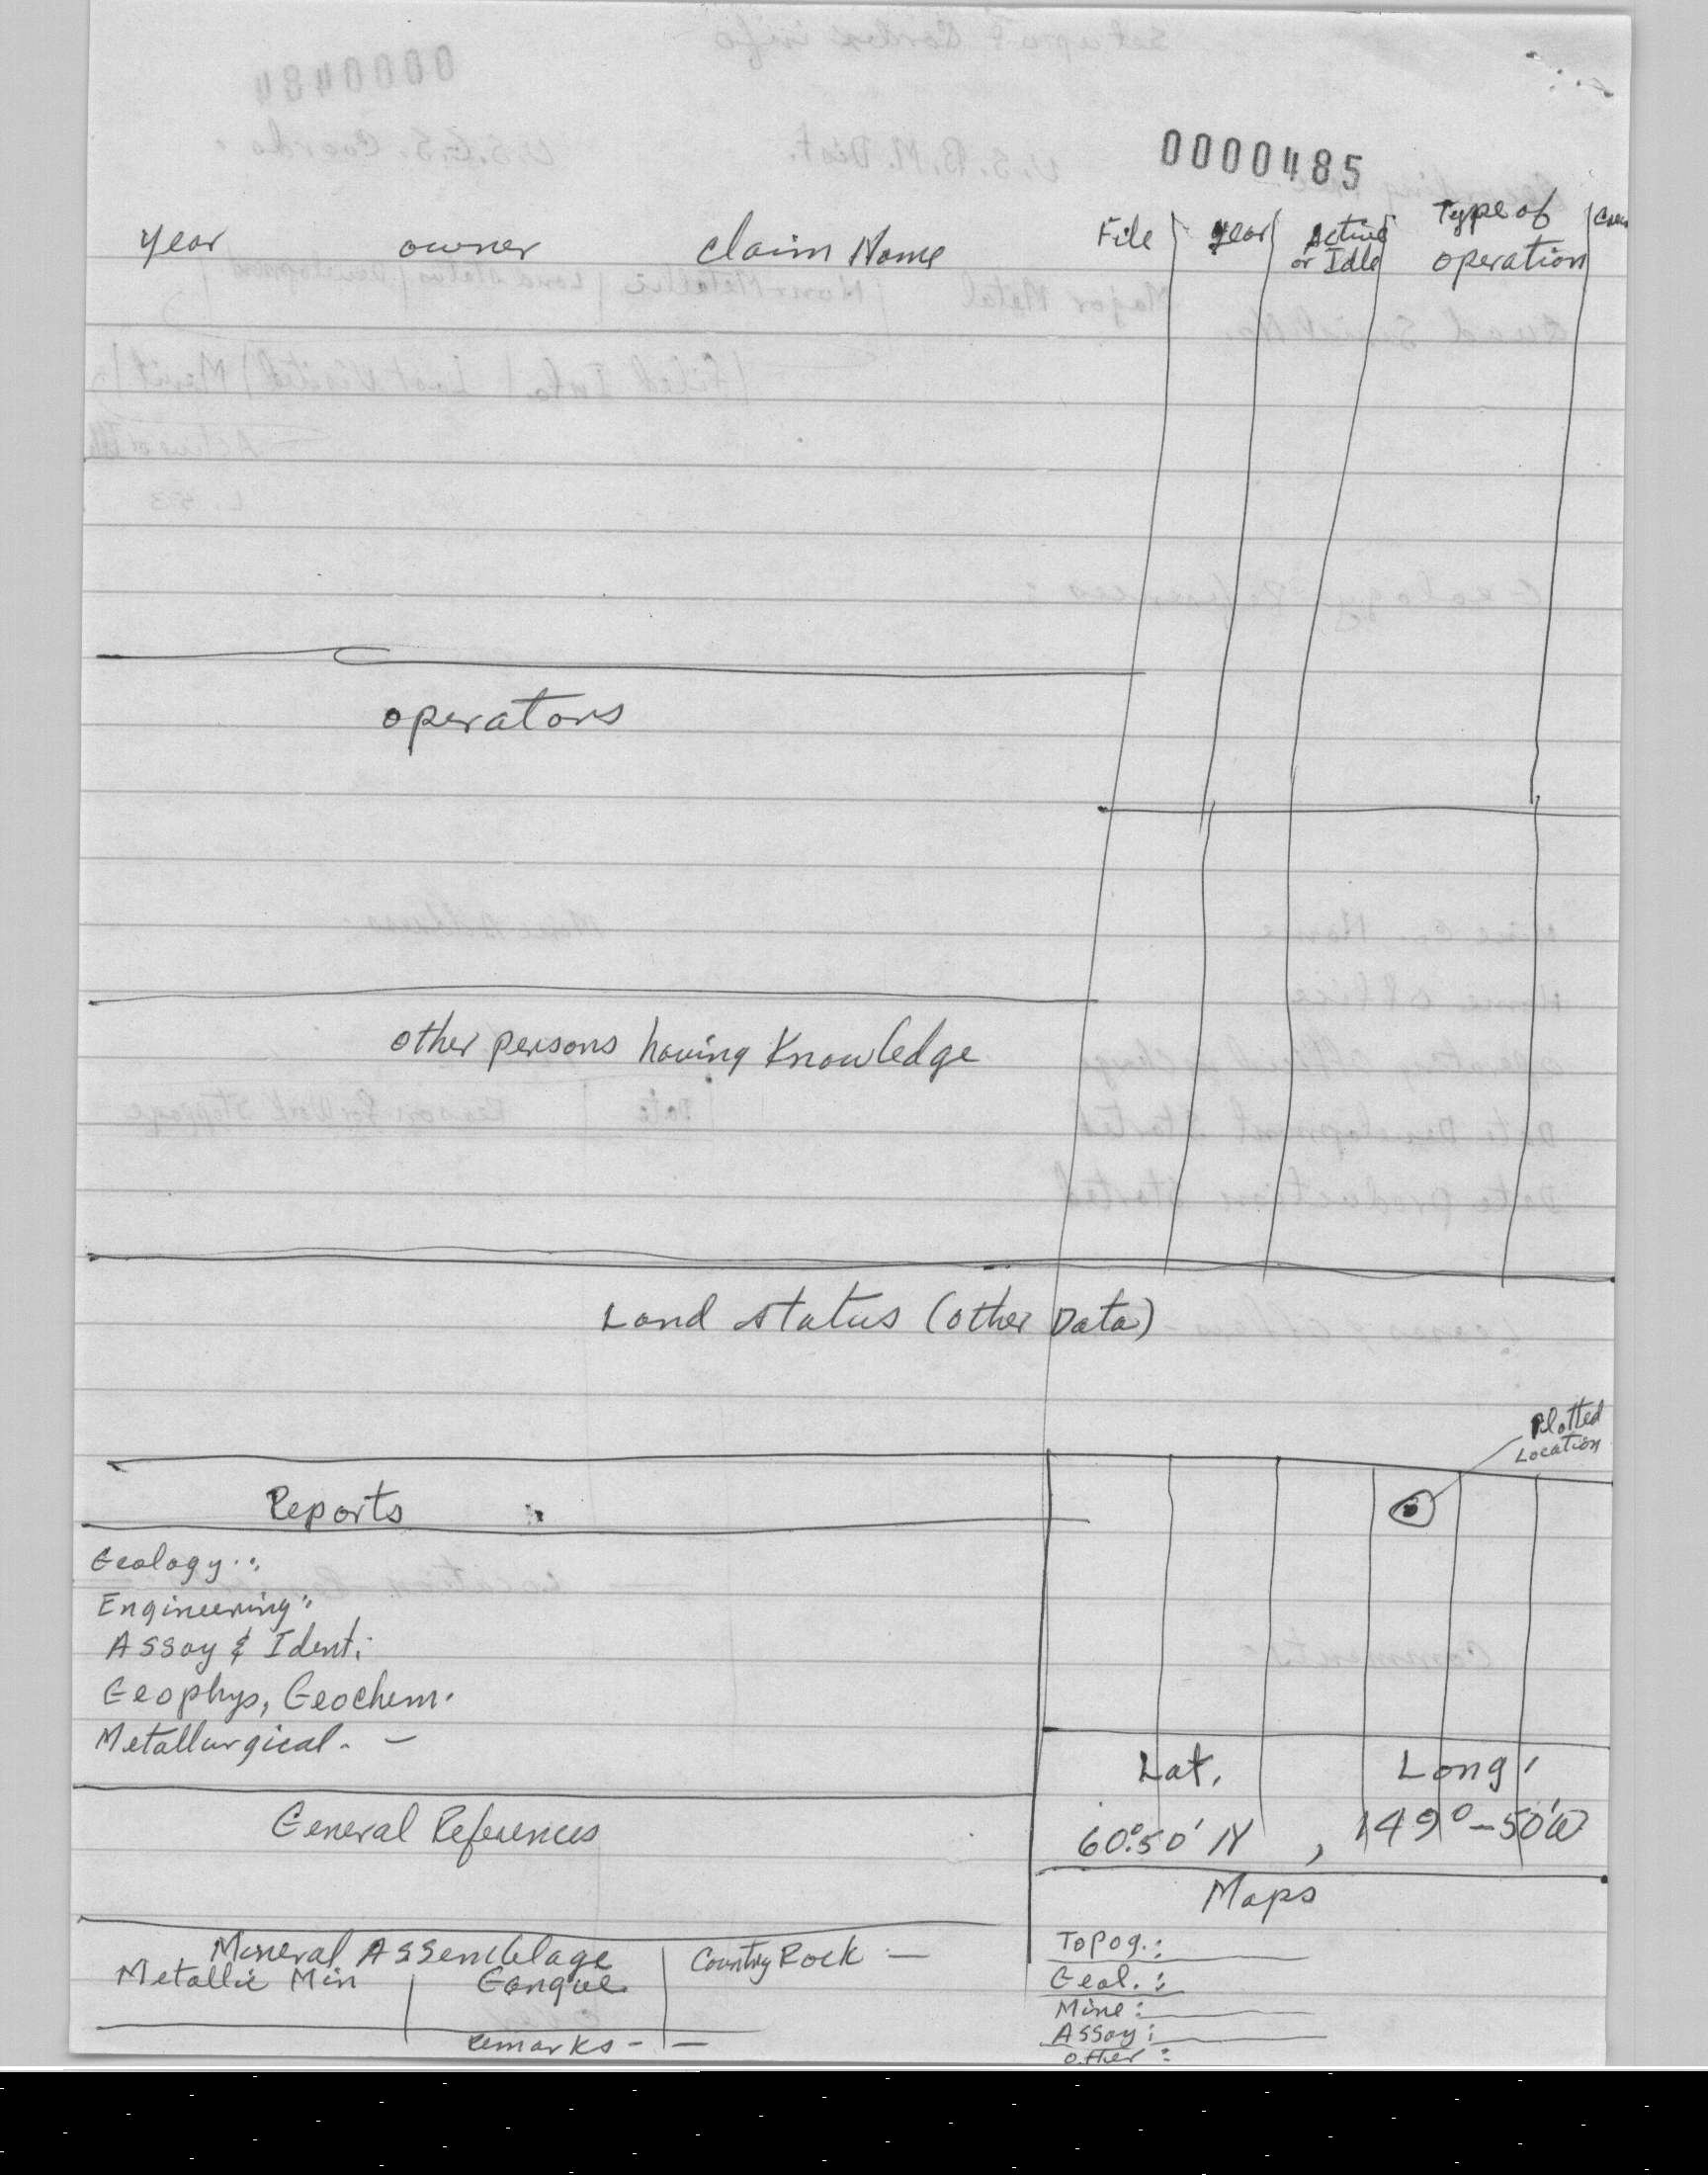 0000485
year owner Claim Name File year Active or Idle Type of operation
operators
other persons having Knowledge
Land status (other Data)
Plotted
Location
Reports
Geology:
Engineering:
Assay & Ident:
Geophys, Geochem.
Metallurgical. —
Lat. Long.
60°50' N , 149°-50'W
General References
Maps
Topog.:
Geol.:
Mine:
Assay:
other:
Mineral Assemblage
Metallic Min Gangue Country Rock —
Remarks - —